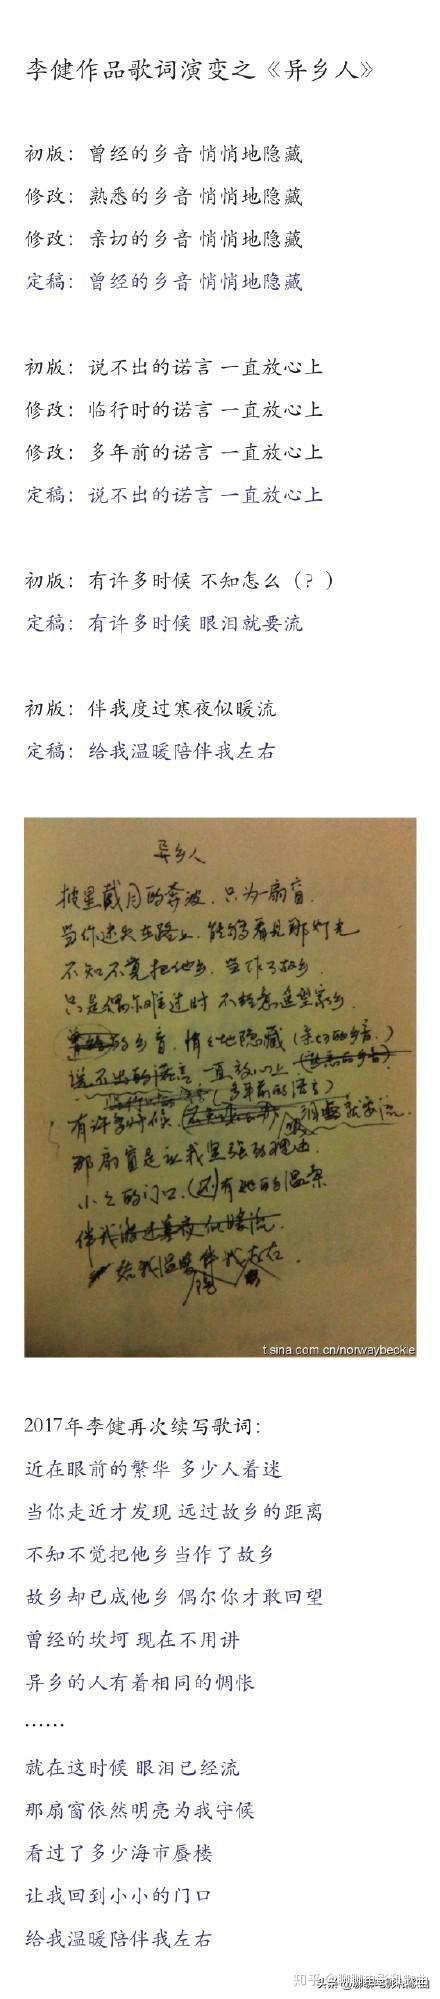 李健作品歌词演变之《异乡人》
初版：曾经的乡音 悄悄地隐藏
修改：熟悉的乡音 悄悄地隐藏
修改：亲切的乡音 悄悄地隐藏
定稿：曾经的乡音 悄悄地隐藏
初版：说不出的诺言 一直放心上
修改：临行时的诺言 一直放心上
修改：多年前的诺言 一直放心上
定稿：说不出的诺言 一直放心上
初版：有许多时候 不知怎么（？）
定稿：有许多时候 眼泪就要流
初版：伴我度过寒夜似暖流
定稿：给我温暖陪伴我左右
异乡人
披星戴月的奔波，只为一扇窗
当你迷失在路上，能够看见那灯光
不知不觉把他乡，当作了故乡
只是偶尔难过时 不经意遥望家乡
曾经的乡音，悄悄地隐藏（亲切的乡音）（熟悉的乡音）
说不出的诺言 一直放心上
（多年前的诺言）
有许多时候，眼泪就要流
那扇窗是让我坚强的理由
小小的门口，（还）有她的温柔
伴我度过寒夜似暖流
给我温暖 陪伴我左右
t.sina.com.cn/norwaybeckie
2017年李健再次续写歌词：
近在眼前的繁华 多少人着迷
当你走近才发现 远过故乡的距离
不知不觉把他乡当作了故乡
故乡却已成他乡 偶尔你才敢回望
曾经的坎坷 现在不用讲
异乡的人有着相同的惆怅
……
就在这时候 眼泪已经流
那扇窗依然明亮为我守候
看过了多少海市蜃楼
让我回到小小的门口
给我温暖陪伴我左右
头条@聊聊电影和歌曲